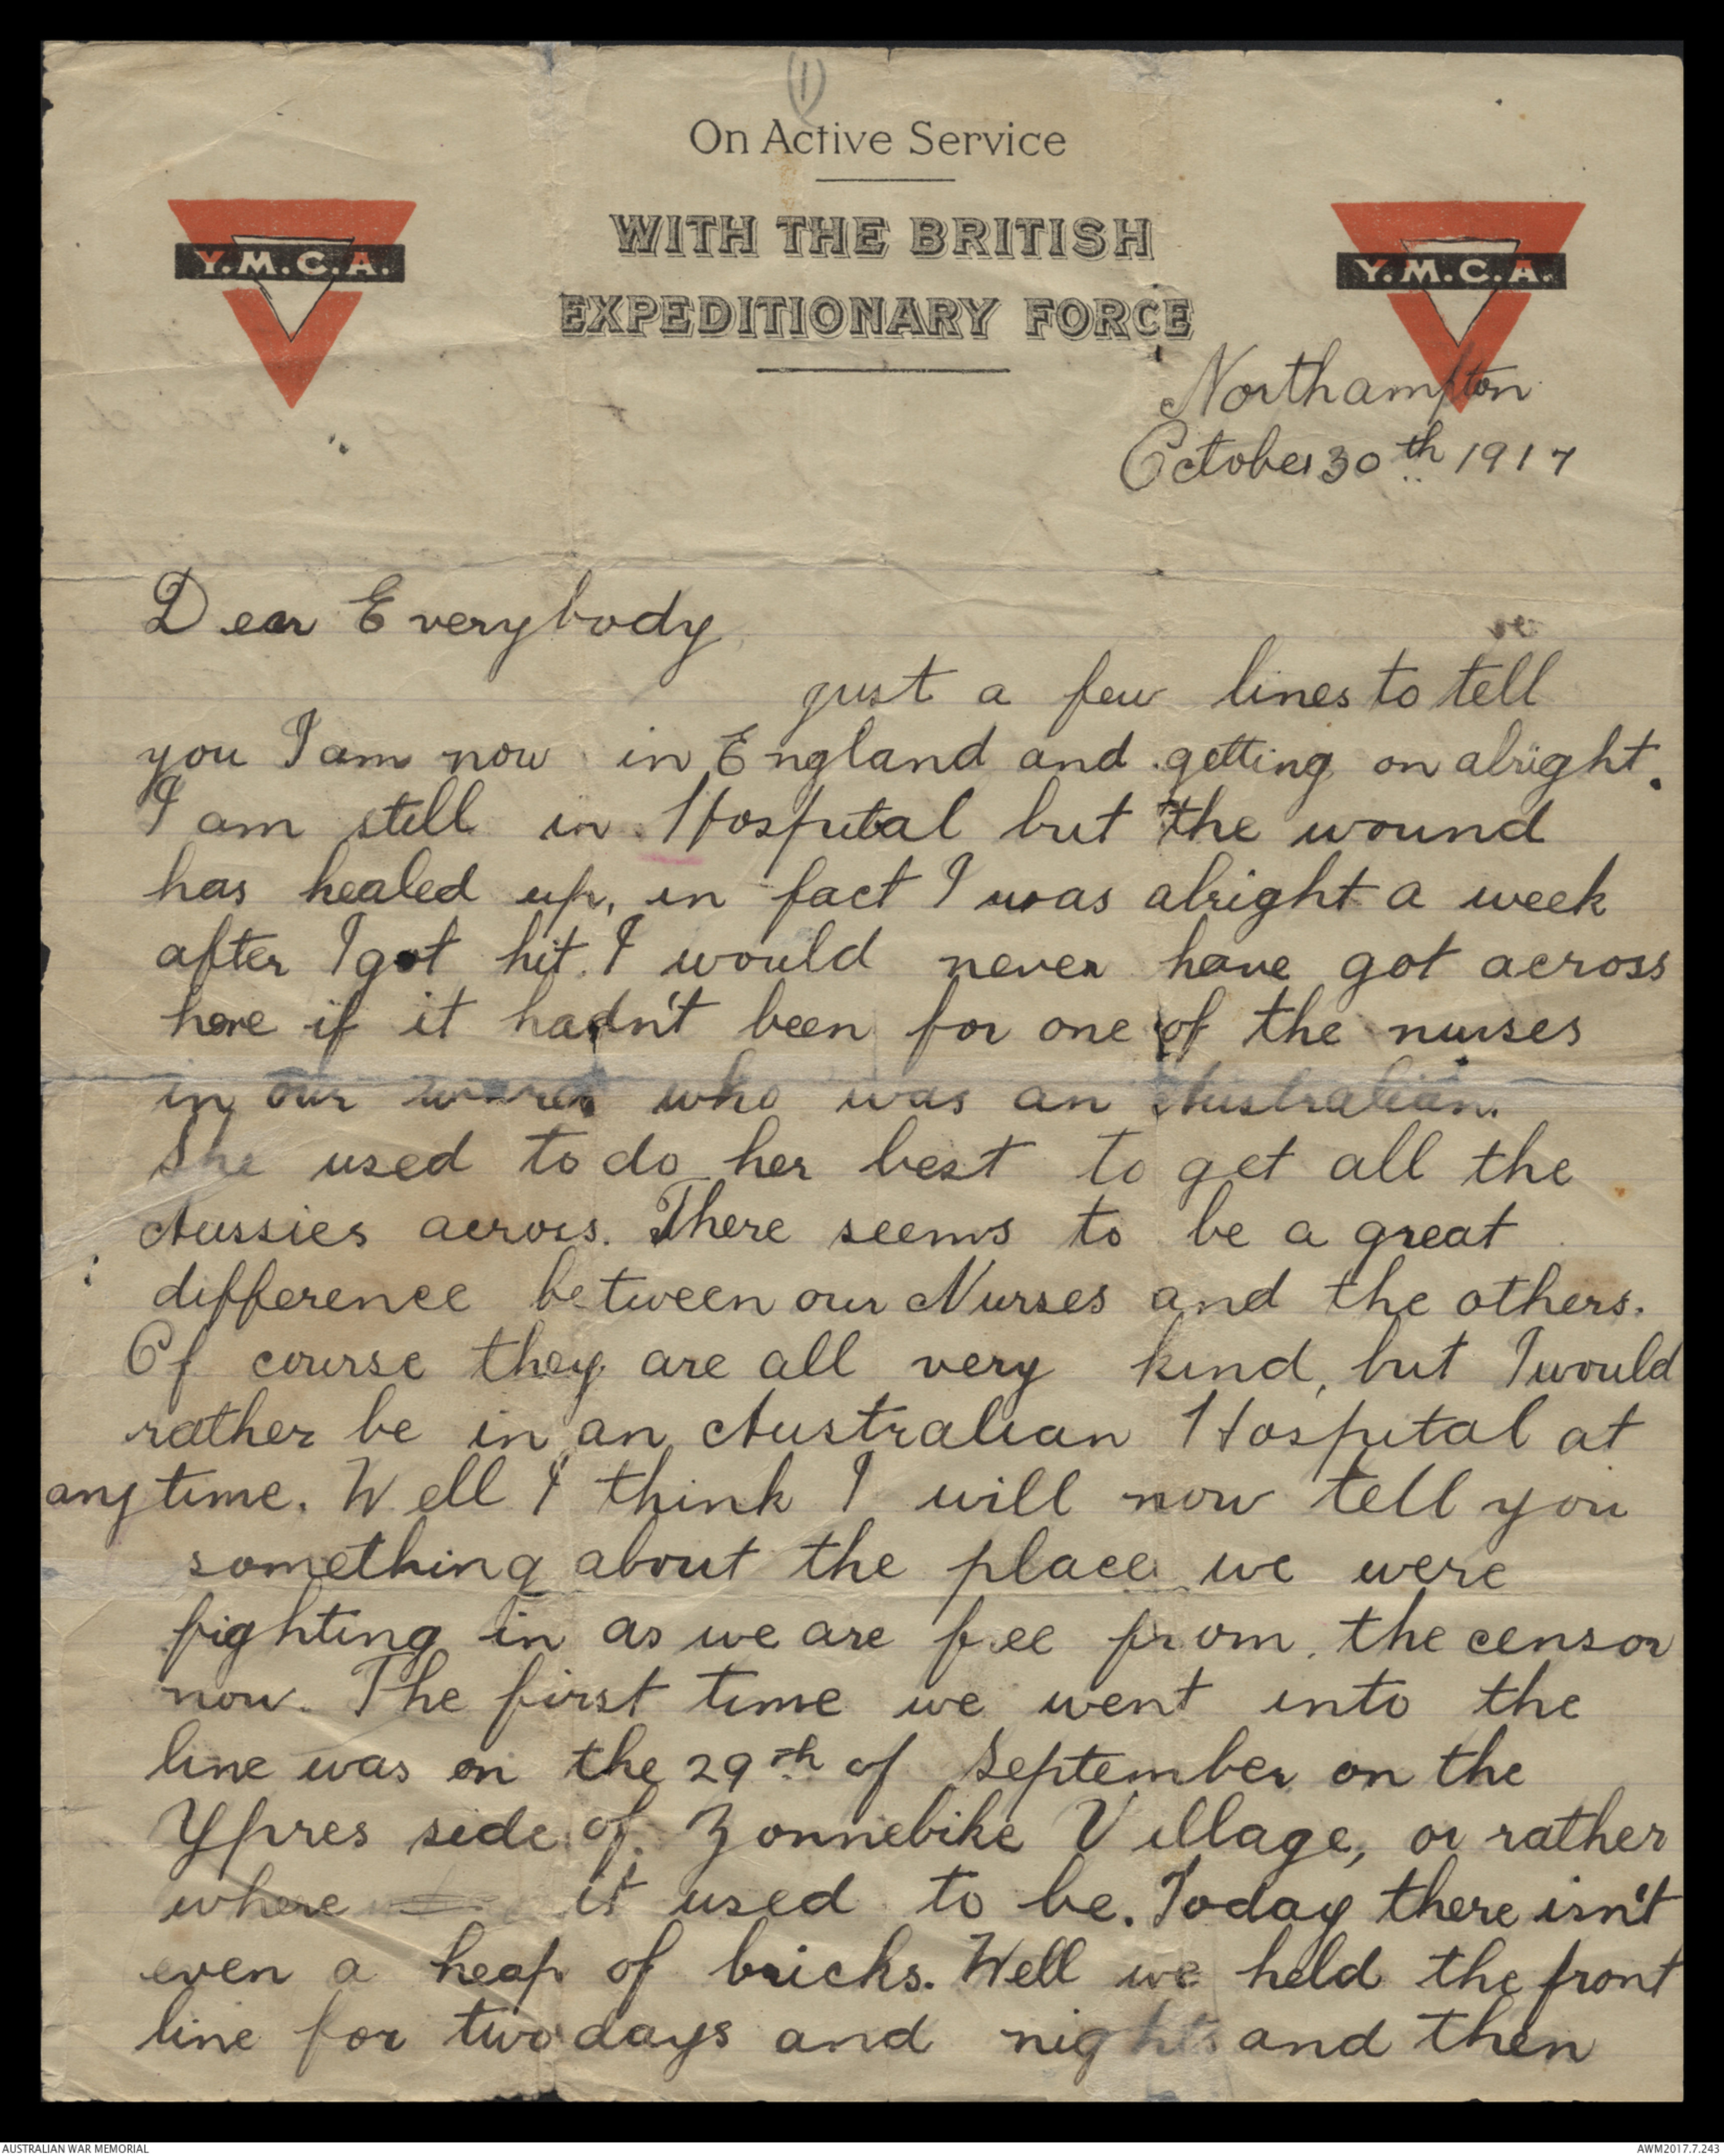 (1)
On Active Service
WITH THE BRITISH
EXPEDITIONARY FORCE
Y.M.C.A.
Y.M.C.A.
Northampton
October 30th 1917
Dear Everybody
just a few lines to tell
you I am now in England and getting on alright.
I am still in Hospital but the wound
has healed up, in fact I was alright a week
after I got hit. I would never have got across
here if it hadn't been for one of the nurses
in our ward who was an Australian.
She used to do her best to get all the
Aussies across. There seems to be a great
difference between our Nurses and the others.
Of course they are all very kind, but I would
rather be in an Australian Hospital at
any time. Well I think I will now tell you
something about the place we were
fighting in as we are free from the censor
now. The first time we went into the
line was on the 29th of September on the
Ypres side of Zonnebike Village, or rather
where it used to be. Today there isn't
even a heap of bricks. Well we held the front
line for two days and nights and then
AUSTRALIAN WAR MEMORIAL
AWM2017.7.243